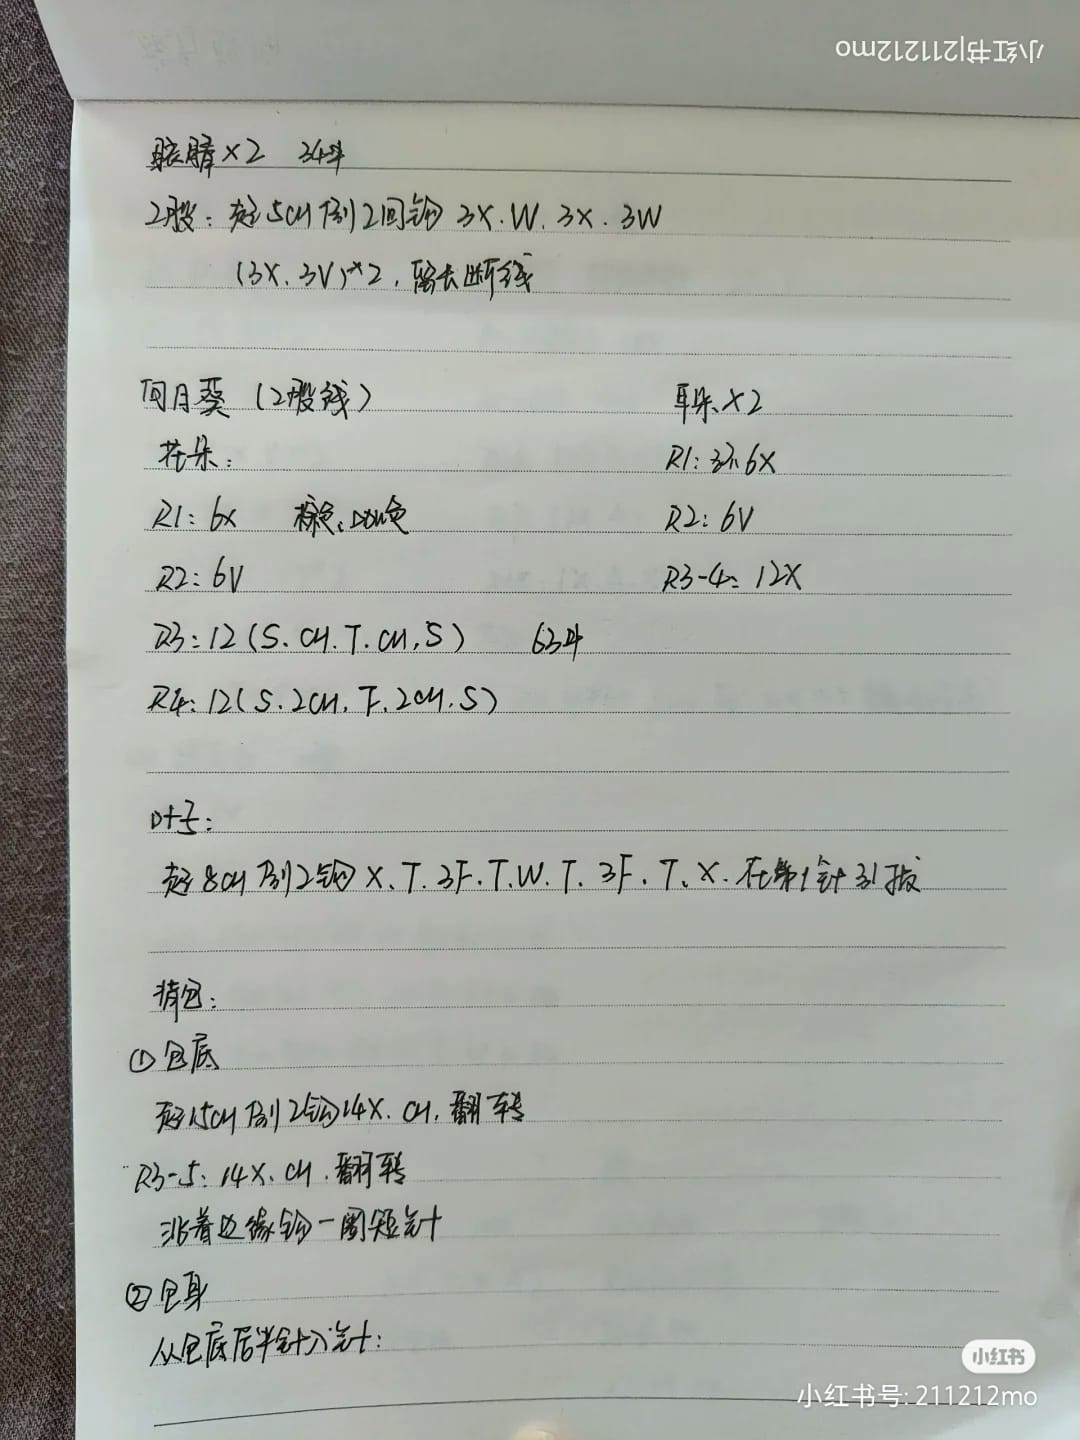 小红书|211212mo
眼睛×2 3股
2股:起5CH倒2回钩 3X.W.3X.3W
(3X.3V)*2,留长断线
向日葵(2股线)
花朵:
R1:6X 棕色
R2:6V
R3:12(S.CH.T.CH.S)
R4:12(S.2CH.F.2CH.S)
耳朵×2
R1:环6X
R2:6V
R3-4:12X
叶子:
起8CH倒2钩X.T.3F.T.W.T.3F.T.X.在第1针引拔
背包:
①包底
起15CH倒2钩14X.CH.翻转
R3-5:14X.CH.翻转
沿着边缘钩一圈短针
②包身
从包底后半针入针:
小红书
小红书号:211212mo